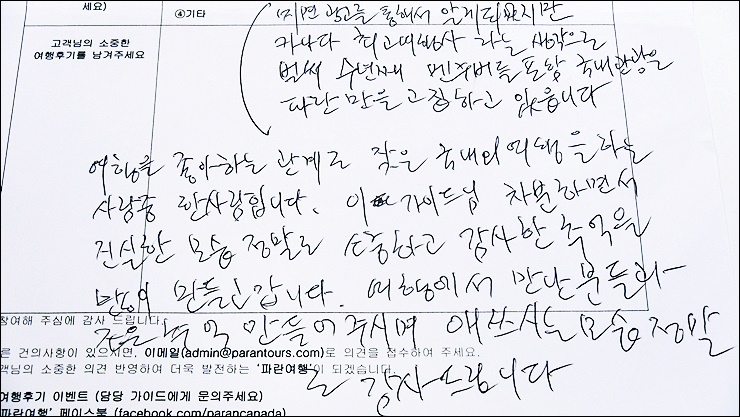 세요)
④기타
지면 광고를 통해서 알게 되었지만
카나다 최고여행사 라는 생각으로
고객님의 소중한
여행후기를 남겨주세요
벌써 수년째 밴쿠버를 포함 국내관광을
파란만을 고집하고 있읍니다
여행을 좋아하는 관계로 잦은 국내외 여행을 하는
사람중 한사람입니다. 이 가이드님 차분하면서
진실한 모습 정말로 소중하고 감사한 추억을
많이 만들고 갑니다. 여행에서 만난 분들과
참여해 주심에 감사 드립니다.
좋은 추억 만들어 주시며 애쓰시는 모습 정말
은 건의사항이 있으시면, 이메일(admin@parantours.com)로 의견을 접수하여 주세요.
고객님의 소중한 의견 반영하여 더욱 발전하는 '파란여행'이 되겠습니다.
로 감사드립니다
여행후기 이벤트 (담당 가이드에게 문의주세요)
'파란여행' 페이스북 (facebook.com/parancanada)